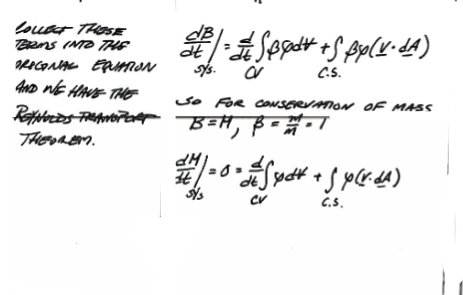 COLLECT THESE
TERMS INTO THE
ORIGINAL EQUATION
AND WE HAVE THE
REYNOLDS TRANSPORT
THEOREM.
dB/dt |sys. = d/dt ∫CV βρdV + ∫C.S. βρ(V·dA)
SO FOR CONSERVATION OF MASS
B=M, β = M/M = 1
dM/dt |sys = 0 = d/dt ∫CV ρdV + ∫C.S. ρ(V·dA)